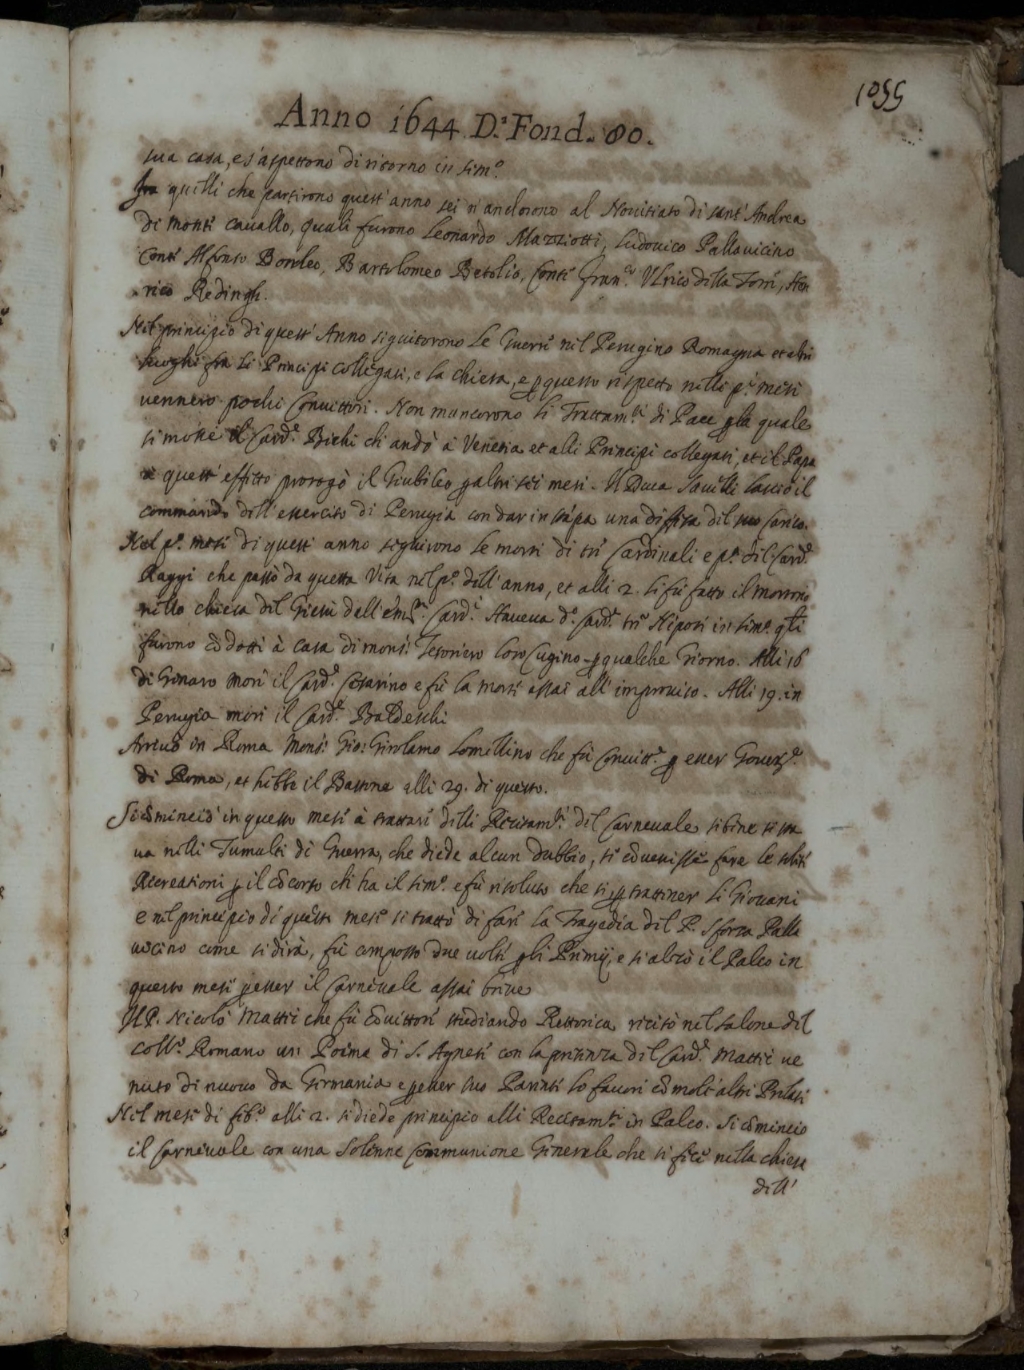 1055
Anno 1644 D.ª Fond. 80.
sua casa, e s'aspettono di ritorno in sem.º
Fra quelli che partirono quest'anno sei n'andorono al Novitiato di sant'Andrea
di Monte Cavallo, quali furono Leonardo Mazziotti, Ludovico Pallavicino
Conte Alfonso Bartolomeo Betolio, Conte Fran.co Ulrico della Torre, Hen
rico Redingh.
Nel principio di quest'Anno seguitorono le Guerre nel Perugino Romagna et altri
luoghi fra li Principi collegati, e la chiesa, e p questo rispetto nelli p.i mesi
vennero pochi Convittori. Non mancorono li Trattam.ti di Pace p la quale
si mosse il Card.e Bichi ch'andò à Venetia et alli Principi collegati, et il Papa
a quest'effetto prorogò il Giubileo p altri sei mesi. Il Duca Savelli lasciò il
commando dell'essercito di Perugia con dar in stãpa una difesa del suo carico.
Nel p.º mese di quest'anno seguirono le morti di trè Cardinali e p.ª del Card.e
Raggi che passò da questa Vita nel p.º dell'anno, et alli 2. li fù fatto il mortorio
nella chiesa del Giesù dell'em.mi Card.i Haveva d.º Card.e trè Nipoti in sem.º q̃li
furono cõdotti à casa di mons.r Tesoriero loro Cugino p qualche Giorno. Alli 16
di Genaro morì il Card.e Cesarino e fù la morte assai all'improviso. Alli 19. in
Perugia morì il Card.e Baldeschi
Arrivò in Roma Mons.r Gio: Girolamo Lomellino che fù Convitt.e p esser Govern.e
di Roma, et hebbe il Bastone alli 29. di questo.
Si cõminciò in questo mese à trattare delli Recitam.ti del Carnevale si bene si sta
va nelli Tumulti di Guerra, che diede alcun dubbio, se cõvenisse fare le solite
Recreationi p il cõcorso ch'ha il sem.º e fù risoluto che si p trattiner li Giovani
e nel principio di questo mese si trattò di fare la Tragedia del P. Sforza Palla
vicino come si dirà, fù composto due volte gli Primij, e s'alzò il Palco in
questo mese p esser il Carnevale assai breve
Il P. Nicolò Mattei che fù Cõvittore studiando Rettorica recitò nel salone del
Coll.º Romano un Poema di S. Agnese con la presenza del Card.e Mattei ve
nuto di nuovo da Germania e p esser suo Parente lo favorì cõ molti altri Prelati
Nel mese di feb.º alli 2. si diede principio alli Recitam.ti in Palco. Si cõminciò
il Carnevale con una Solenne Communione Generale che si fece nella chiesa
dell'